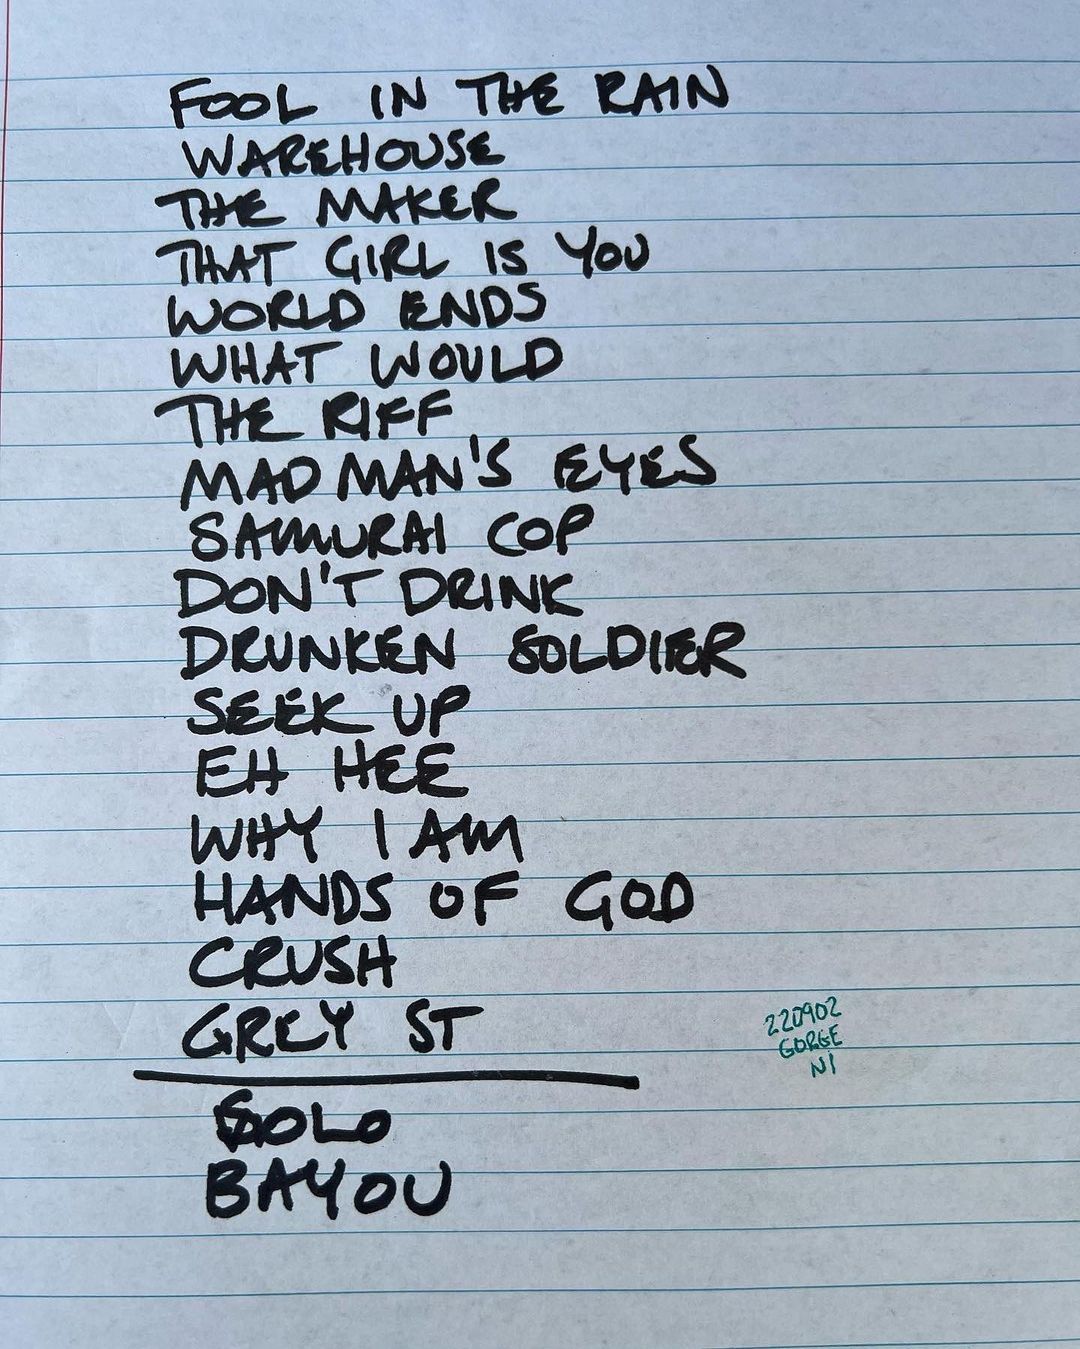 FOOL IN THE RAIN
WAREHOUSE
THE MAKER
THAT GIRL IS YOU
WORLD ENDS
WHAT WOULD
THE RIFF
MAD MAN'S EYES
SAMURAI COP
DON'T DRINK
DRUNKEN SOLDIER
SEEK UP
EH HEE
WHY I AM
HANDS OF GOD
CRUSH
GREY ST
220902
GORGE
N1
SOLO
BAYOU